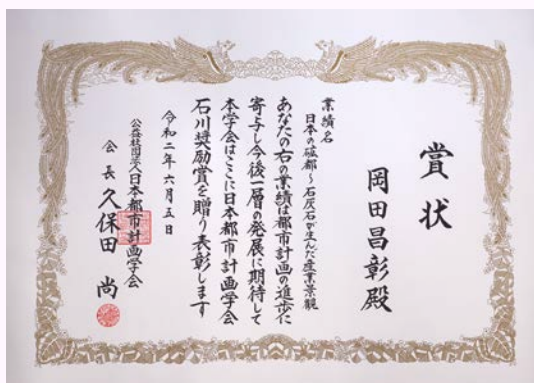 賞状
岡田昌彰殿
業績名
日本の砿都～石灰石が生んだ産業景観
あなたの右の業績は都市計画の進歩に
寄与し今後一層の発展に期待して
本学会はここに日本都市計画学会
石川奨励賞を贈り表彰します
令和二年六月五日
公益社団法人日本都市計画学会
会長 久保田 尚